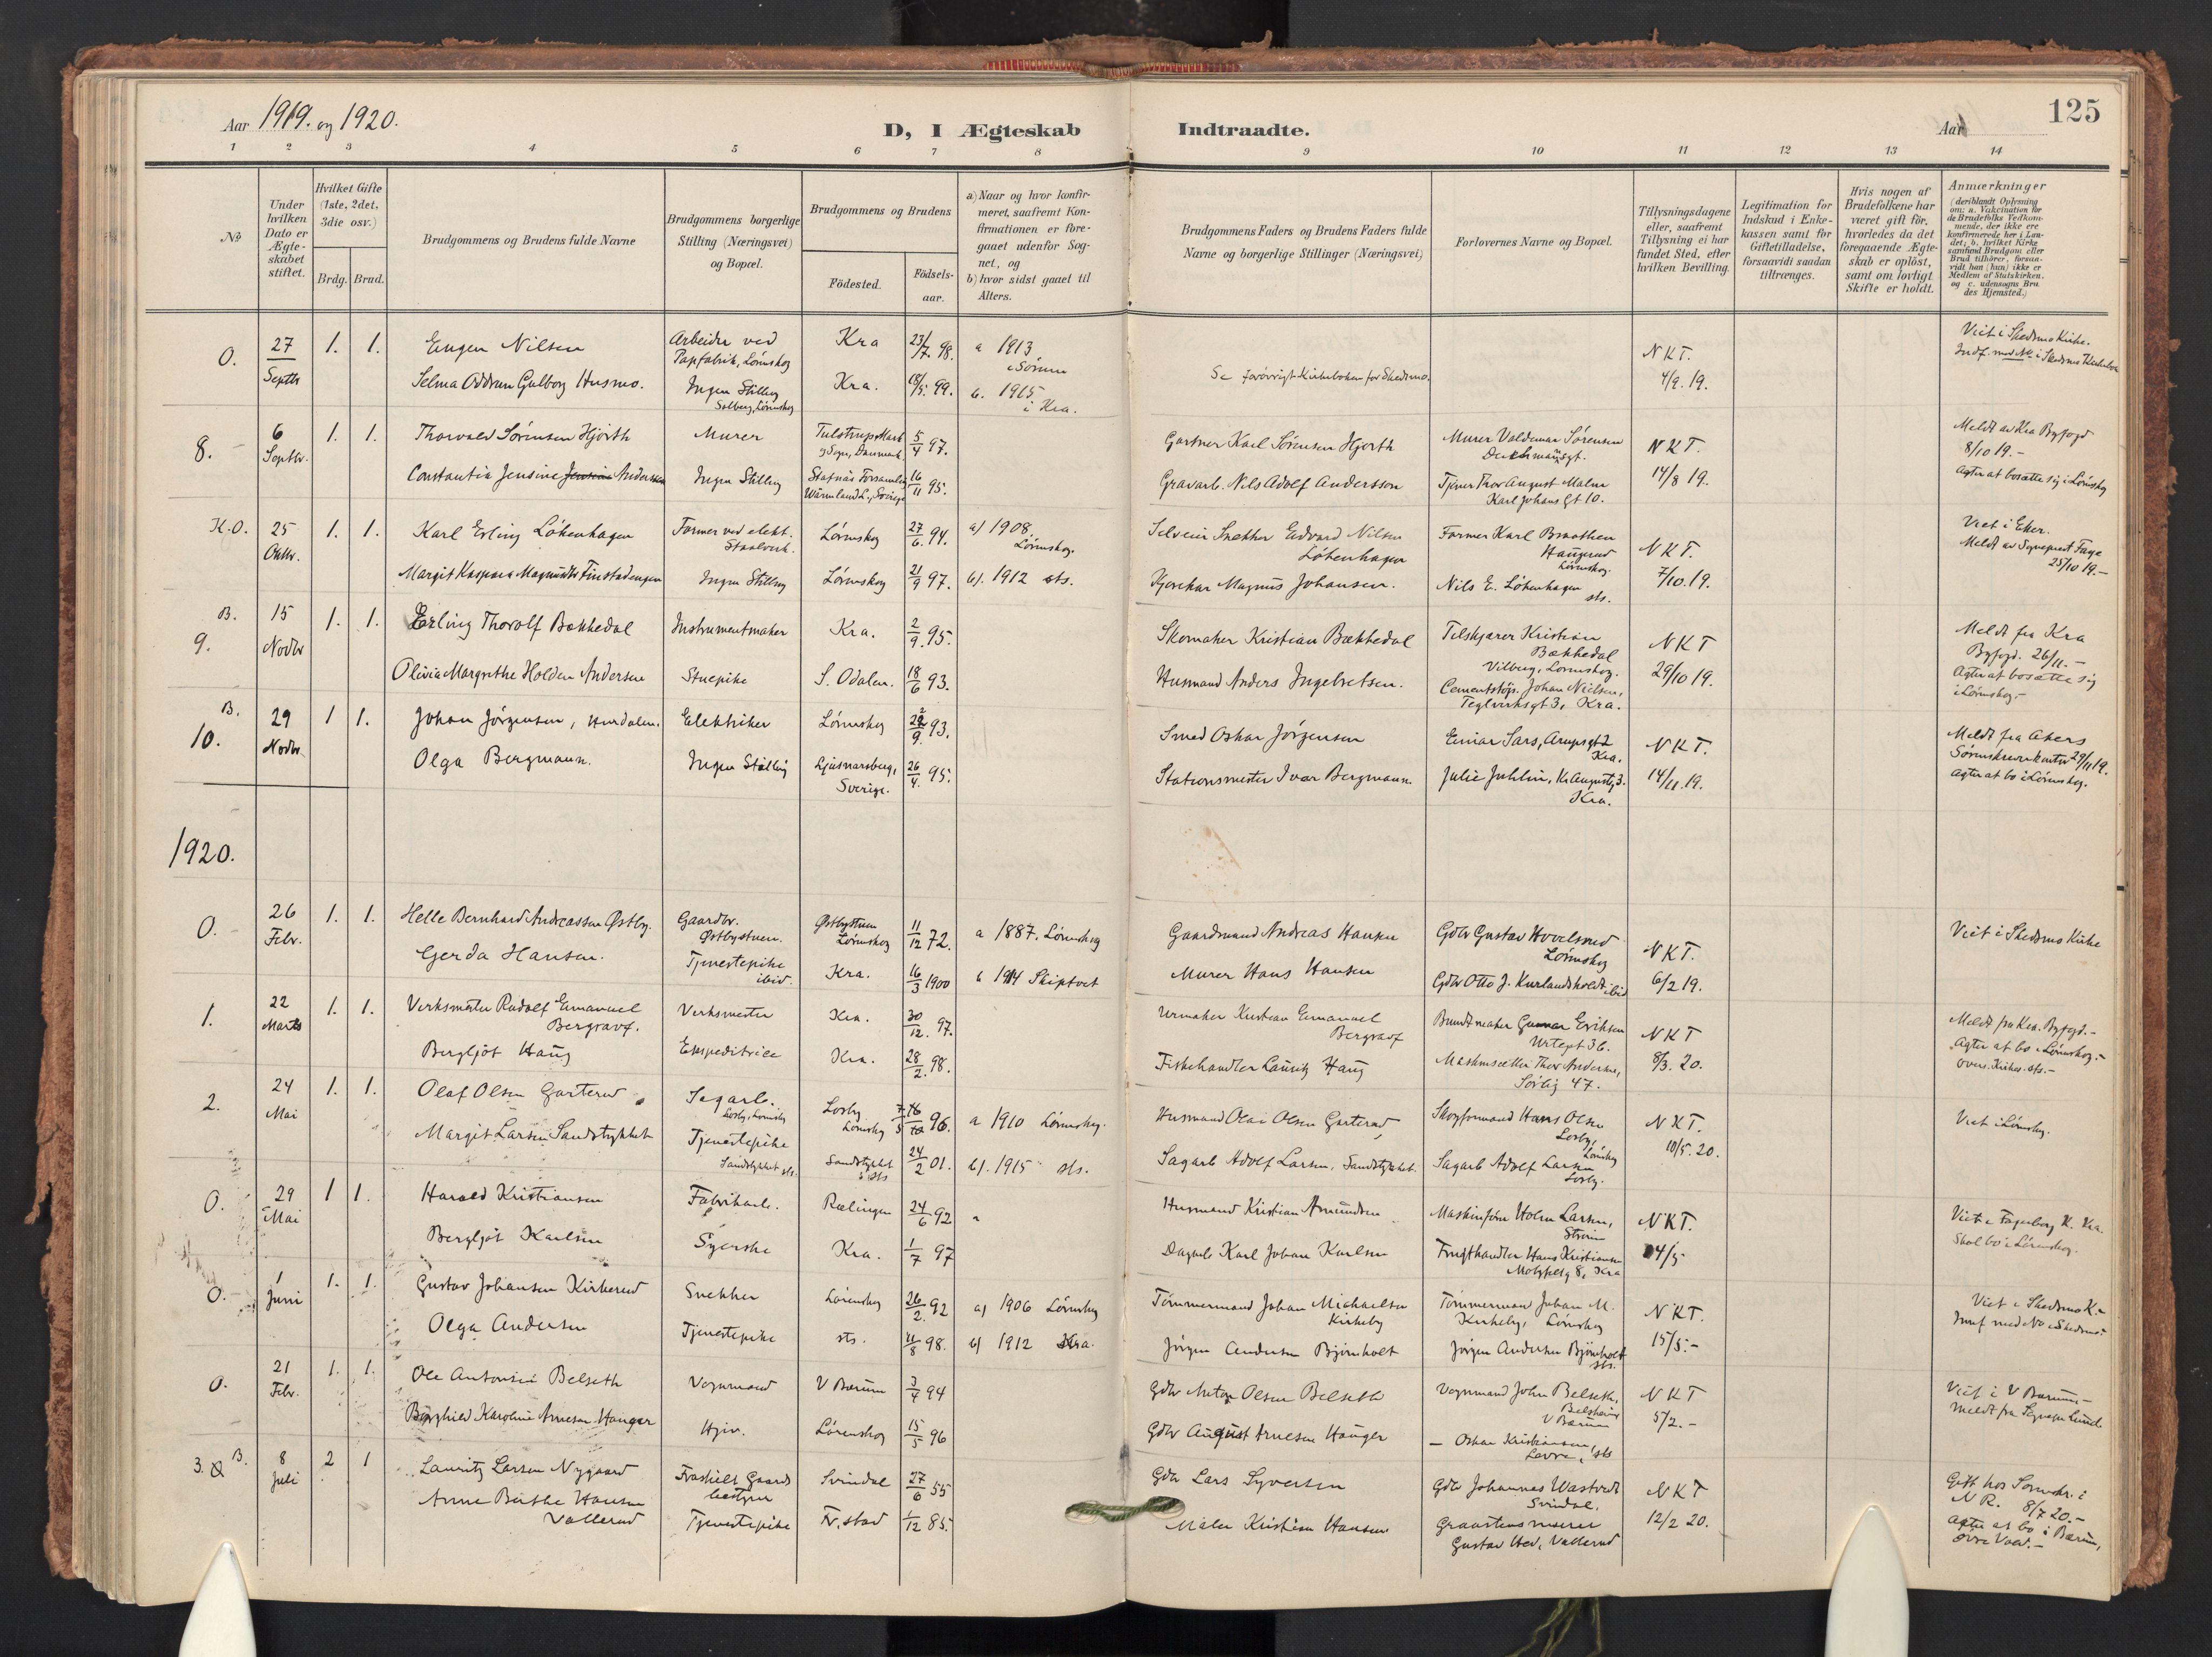 Aar 1919. og 1920.
D, I Ægteskab
Indtraadte.
Aar
125
1 2 3 4 5 6 7 8 9 10 11 12 13 14
No
Under hvilken Dato er Ægte-skabet stiftet.
Hvilket Gifte (1ste, 2det, 3die osv.)
Brdg. Brud.
Brudgommens og Brudens fulde Navne
Brudgommens borgerlige Stilling (Næringsvei) og Bopæl.
Brudgommens og Brudens
Födested.
Födsels-aar.
a) Naar og hvor konfir-meret, saafremt Kon-firmationen er fore-gaaet udenfor Sog-net, og
b) hvor sidst gaaet til Alters.
Brudgommens Faders og Brudens Faders fulde Navne og borgerlige Stillinger (Næringsvei)
Forlovernes Navne og Bopæl.
Tillysningsdagene eller, saafremt Tillysning ei har fundet Sted, efter hvilken Bevilling.
Legitimation for Indskud i Enke-kassen samt for Giftetilladelse, forsaavidt saadan tiltrænges.
Hvis nogen af Brudefolkene har været gift för, hvorledes da det foregaaende Ægte-skab er oplöst, samt om lovligt Skifte er holdt.
Anmærkninger
(deriblandt Oplysning om: a. Vakcination for de Brudefolks Vedkom-mende, der ikke ere konfirmerede her i Lan-det, b. hvilket Kirke-samfund Brudgom eller Brud tilhörer, forsaa-vidt han (hun) ikke er Medlem af Statskirken. og c. udensogns Bru-des Hjemsted.)
0. 27 Septbr 1. 1.
Eugen Nilsen
Arbeider ved Papfabrik, Lørenskog
Kra 23/7. 98.
a 1913 i Sørum
Selma Oddrun Gulborg Husmo.
Ingen Stilling
Solberg, Lørenskog
Kra. 18/5. 99.
b. 1915 i Kra.
Se forøvrigt Kirkeboken for Skedsmo.
N K T. 4/9. 19.
Viet i Skedsmo Kirke.
Indf. med No i Skedsmo Kirkebok
8. 6 Septbr. 1. 1.
Thorvald Sørensen Hjorth
Murer
Tulstrup Mark
og Sogn, Danmark.
5/4 97.
Constantia Jensine Jensine Andersson
Ingen Stilling
Stafnäs Forsamling
Wärmland L., Sverige
16/11 95.
Gartner Karl Sørensen Hjorth
Murer Valdemar Sørensen
Gravarb. Nils Adolf Andersson
Tjener Thor August Malm
Karl Johans Gt 10.
N K T. 14/8 19.
Meldt av Kra Byfogd 8/10 19.-
Agter at bosætte sig i Lørenskog
K.O. 25 Oktbr. 1. 1.
Karl Erling Løkenhagen
Former ved elekt. Staalverk.
Lørenskog 27/6. 94.
a) 1908. Lørenskog.
Margit Kaspara Magnusdtr Finstadengen
Ingen Stilling
Lørenskog 21/9 97.
b). 1912 sts.
Selveier Snekker Edvard Nilsen Løkenhagen
Former Karl Braathen
Haugerud Lørenskog.
Kjørekar Magnus Johansen.
Nils E. Løkenhagen sts.
N K T. 7/10. 19.
Viet i Eker.
Meldt av Sogneprest Faye 25/10 19.-
B. 9. 15 Novbr 1. 1.
Erling Thorolf Bækkedal
Instrumentmaker
Kra. 2/9. 95.
Olivia Margrethe Holden Andersen
Stuepike
S. Odalen. 18/6 93.
Skomaker Kristian Bækkedal
Tilskjærer Kristian Bækkedal
Vilberg, Lørenskog.
Husmand Anders Ingebretsen.
Cementstøp. Johan Nielsen,
Teglverksgt 3, Kra.
N K T 29/10 19.
Meldt fra Kra
Byfogd. 26/11.-
Agter at bosætte sig i Lørenskog.-
B. 10. 29 Novbr 1 1.
Johan Jørgensen, Hurdalen.
Elektriker
Lørenskog 22/9. 93.
Olga Bergmann.
Ingen Stilling
Ljusnarsberg, Sverige.
26/4. 95.
Smed Oskar Jørgensen
Einar Sars, Arupsgt 2 Kra.
Stationsmester Ivar Bergmann.
Julie Juhlin, Kr. Augustsg 3. Kra.
N K T. 14/11. 19.
Meldt fra Akers
Sorenskriverkontor 29/11 19.
Agter at bo i Lørenskog.
1920.
0. 26 Febr. 1. 1.
Helle Bernhard Andreassen Østby.
Gaardbr. Østbystuen.
Østbystuen Lørenskog
11/12 72.
a 1887. Lørenskog
Gerda Hansen.
Tjenestepike ibid.
Kra. 16/3 1900
b 1914 Skiptvet
Gaardmand Andreas Hansen
Gdbr Gustav Hovelsrud Lørenskog
Murer Hans Hansen
Gdbr Otto J. Kurlandsholdt ibid
N K T. 6/2 19.
Viet i Skedsmo Kirke
1. 22 Marts 1. 1.
Verksmester Rudolf Emanuel Bergravf.
Verksmester
Kra. 30/12. 97.
Bergljot Haug
Ekspeditrice
Kra. 28/2. 98.
Urmaker Kristian Emanuel Bergravf
Buntmaker Gunnar Eriksen
Urtegt 36.
Fiskehandler Lauritz Haug
Maskinsætter Thor Andersen,
Sorlig 47.
N K T 8/3. 20.
Meldt fra Kra. Byfogd.-
Agter at bo i Lørenskog.-
2. 24 Mai 1. 1.
Olaf Olsen Garterud
Sagarb. Losby, Lørenskog
Losby Lørenskog
96.
a 1910 Lørenskog.
Margit Larsen Sandstykket
Tjenestepike
Sandstykket sts.
Sandstykket sts
24/2 01.
b). 1915 sts.
Husmand Olai Olsen Garterud
Skogformand Hans Olsen Losby, Lørenskog
Sagarb Adolf Larsen, Sandstykket.
Sagarb Adolf Larsen Losby.
N K T. 10/5. 20.
Viet i Lørenskog.
0. 29 Mai 1 1.
Harald Kristiansen
Fabrikarb.
Rælingen 24/6 92
a
Bergljot Karlsen
Syerske
Kra. 1/7 97
Husmand Kristian Amundsen
Maskinform Holm Larsen, Strøm
Dagarb Karl Johan Karlsen
Frugthandler Hans Kristiansen
N K T. 4/5
Viet i Fagerborg K. Kra.
Skal bo i Lørenskog.
0.- 1 Juni 1. 1.
Gustav Johansen Kirkerud
Snekker
Lørenskog 26/2. 92
a) 1906 Lørenskog
Olga Andersen
Tjenestepike
sts. 11/8 98.
b) 1912 Kra.
Tømmermand Johan Michaelsen Kirkeby
Tømmermand Johan M. Kirkeby, Lørenskog
Jørgen Andersen Bjørnholt
Jørgen Andersen Bjørnholt sts.
N K T. 15/5.-
Viet i Skedsmo K.-
Innf med No i Skedsmo
0. 21 Febr. 1. 1.
Ole Antonius Belseth
Vognmand
V Bærum 3/4 94
Borghild Karoline Arnesen Hauger
Hjv.
Lørenskog 15/5 96
Gdbr Anton Olsen Belseth
Vognmand John Belseth,
V Bærum
Gdbr August Arnesen Hauger
— Oskar Kristiansen, sts
N K T 5/2.-
Viet i V Bærum.-
Meldt fra Sognepr Lund.
3. B. 8 Juli 2 1
Lauritz Larsen Nygaard
Fraskilt Gaardbestyrer
Svindal 27/6 55
Anne Berthe Hansen Vallerud
Tjenestepike
Fr.stad 1/12 85.
Gdbr Lars Syversen
Gdbr Johannes Wastvedt Svindal.
Maler Kristian Hansen
Graastensmurer
Gustav Hed, Vallerud
N K T 12/2 20.
Gift hos Sorenskr. i
N R. 8/7 20.-
Agter at bo i Bærum,